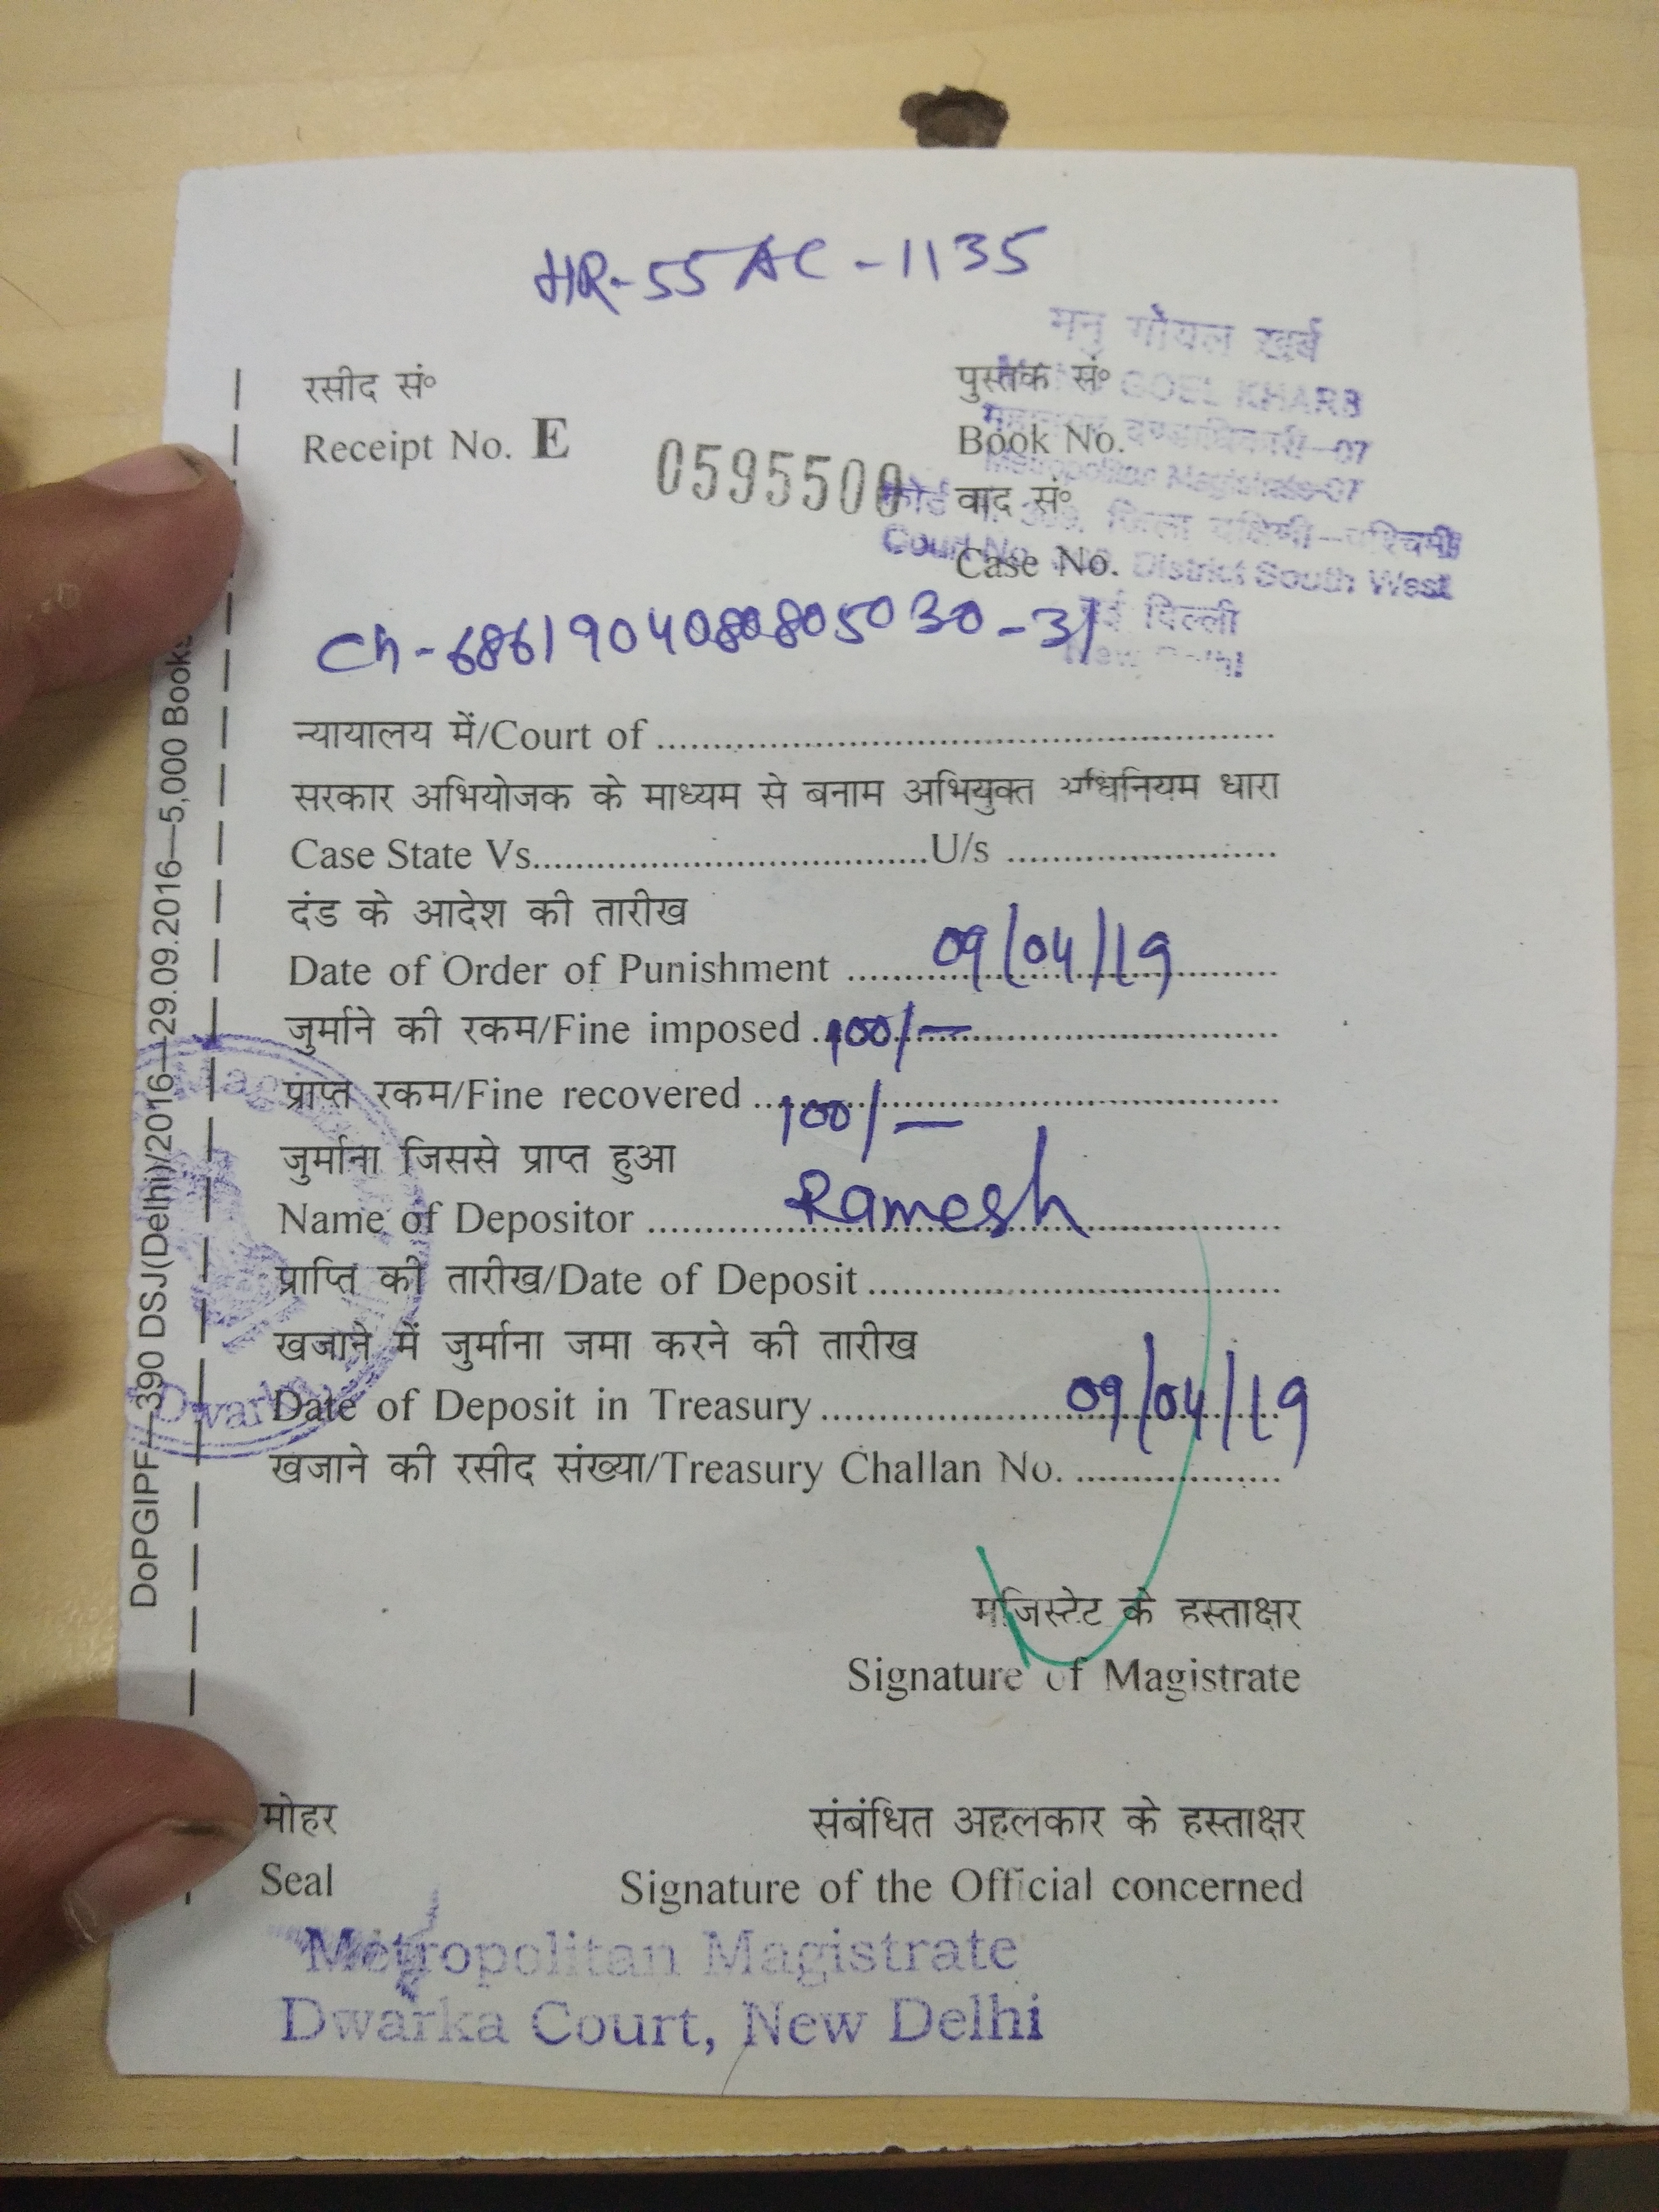 HR-55AC-1135
मनु गोयल खर्ब
GOEL KHARB
दण्डाधिकारी-07
Metropolitan Magistrate-07
जिला दक्षिणी-पश्चिमी
Court No. District South West
नई दिल्ली
New Delhi
रसीद सं॰ पुस्तक सं॰
Receipt No. E 0595500 Book No.
वाद सं॰
Case No.
Ch-68619040808805030-31
न्यायालय में/Court of
सरकार अभियोजक के माध्यम से बनाम अभियुक्त अधिनियम धारा
Case State Vs. U/s
दंड के आदेश की तारीख
Date of Order of Punishment 09/04/19
जुर्माने की रकम/Fine imposed 100/-
प्राप्त रकम/Fine recovered 100/-
जुर्माना जिससे प्राप्त हुआ
Name of Depositor Ramesh
प्राप्ति की तारीख/Date of Deposit
खजाने में जुर्माना जमा करने की तारीख
Date of Deposit in Treasury 09/04/19
खजाने की रसीद संख्या/Treasury Challan No.
मजिस्टेट के हस्ताक्षर
Signature of Magistrate
मोहर संबंधित अहलकार के हस्ताक्षर
Seal Signature of the Official concerned
Metropolitan Magistrate
Dwarka Court, New Delhi
DoPGIPF—390 DSJ(Delhi)/2016—29.09.2016—5,000 Books
Dwarka